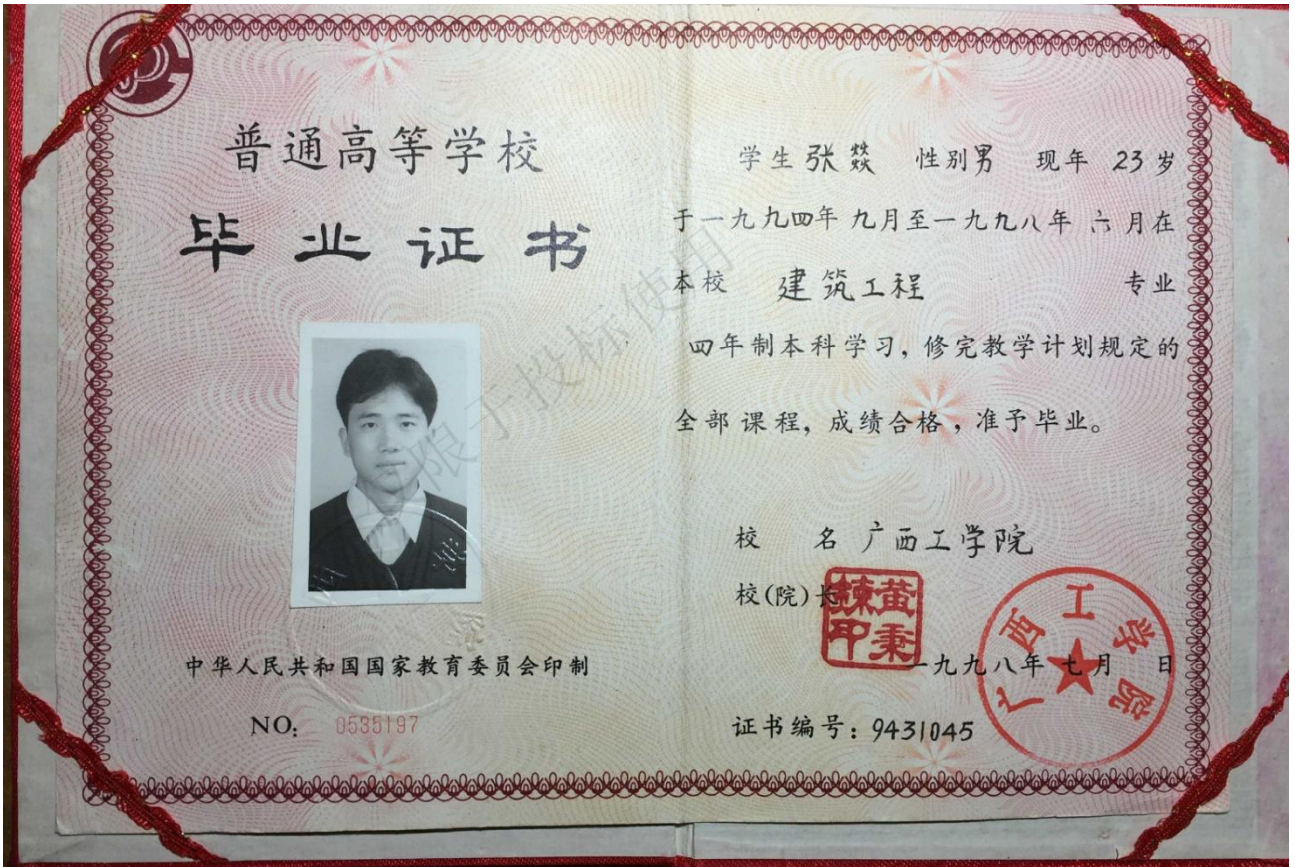 普通高等学校
毕业证书
中华人民共和国国家教育委员会印制
NO: 0535197
学生 张燚 性别 男 现年 23 岁
于一九九四年 九月至一九九八年 六月在
本校 建筑工程 专业
四年制本科学习, 修完教学计划规定的
全部课程, 成绩合格, 准予毕业。
校 名 广西工学院
校(院)长
黄秉
印
一九九八年 七月 日
证书编号: 9431045
广西工学院
限于投标使用